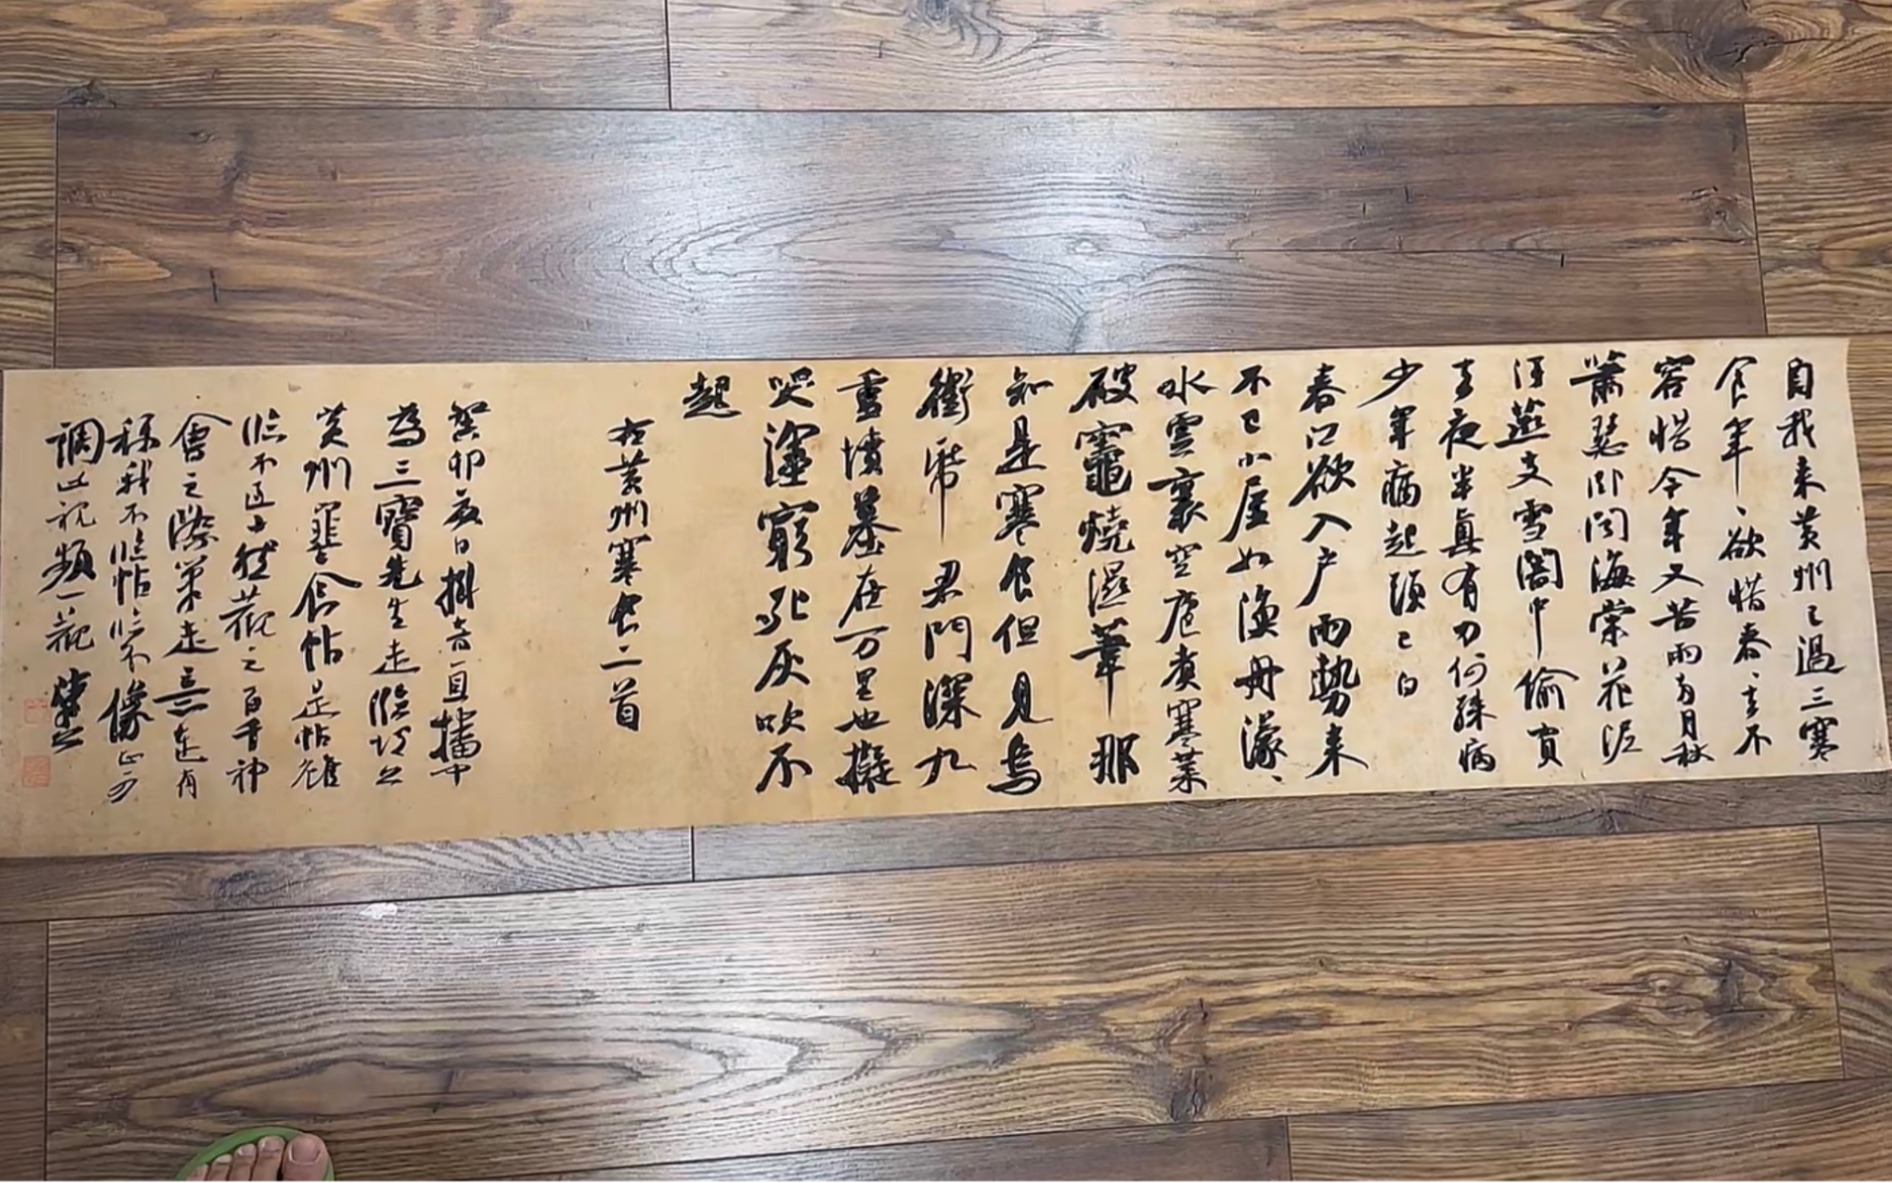 自我来黄州已過三寒
食年、欲惜春、去不
容惜今年又苦雨兩月秋
蕭瑟卧聞海棠花泥
汙燕支雪闇中偷負
去夜半真有力何殊病
少年病起頭已白
春江欲入户雨勢来
不已小屋如漁舟濛、
水雲裏空庖煮寒菜
破竈燒濕葦那
知是寒食但見烏
銜帋君門深九
重墳墓在万里也擬
哭塗窮死灰吹不
起
右黄州寒食二首
癸卯夜日
為三寶先生走臨坡公
黄州寒食帖是帖雖
臨不過十然觀之百千神
會之際筆走意走有
称我不臨帖臨不像正可
調此視頻一觀